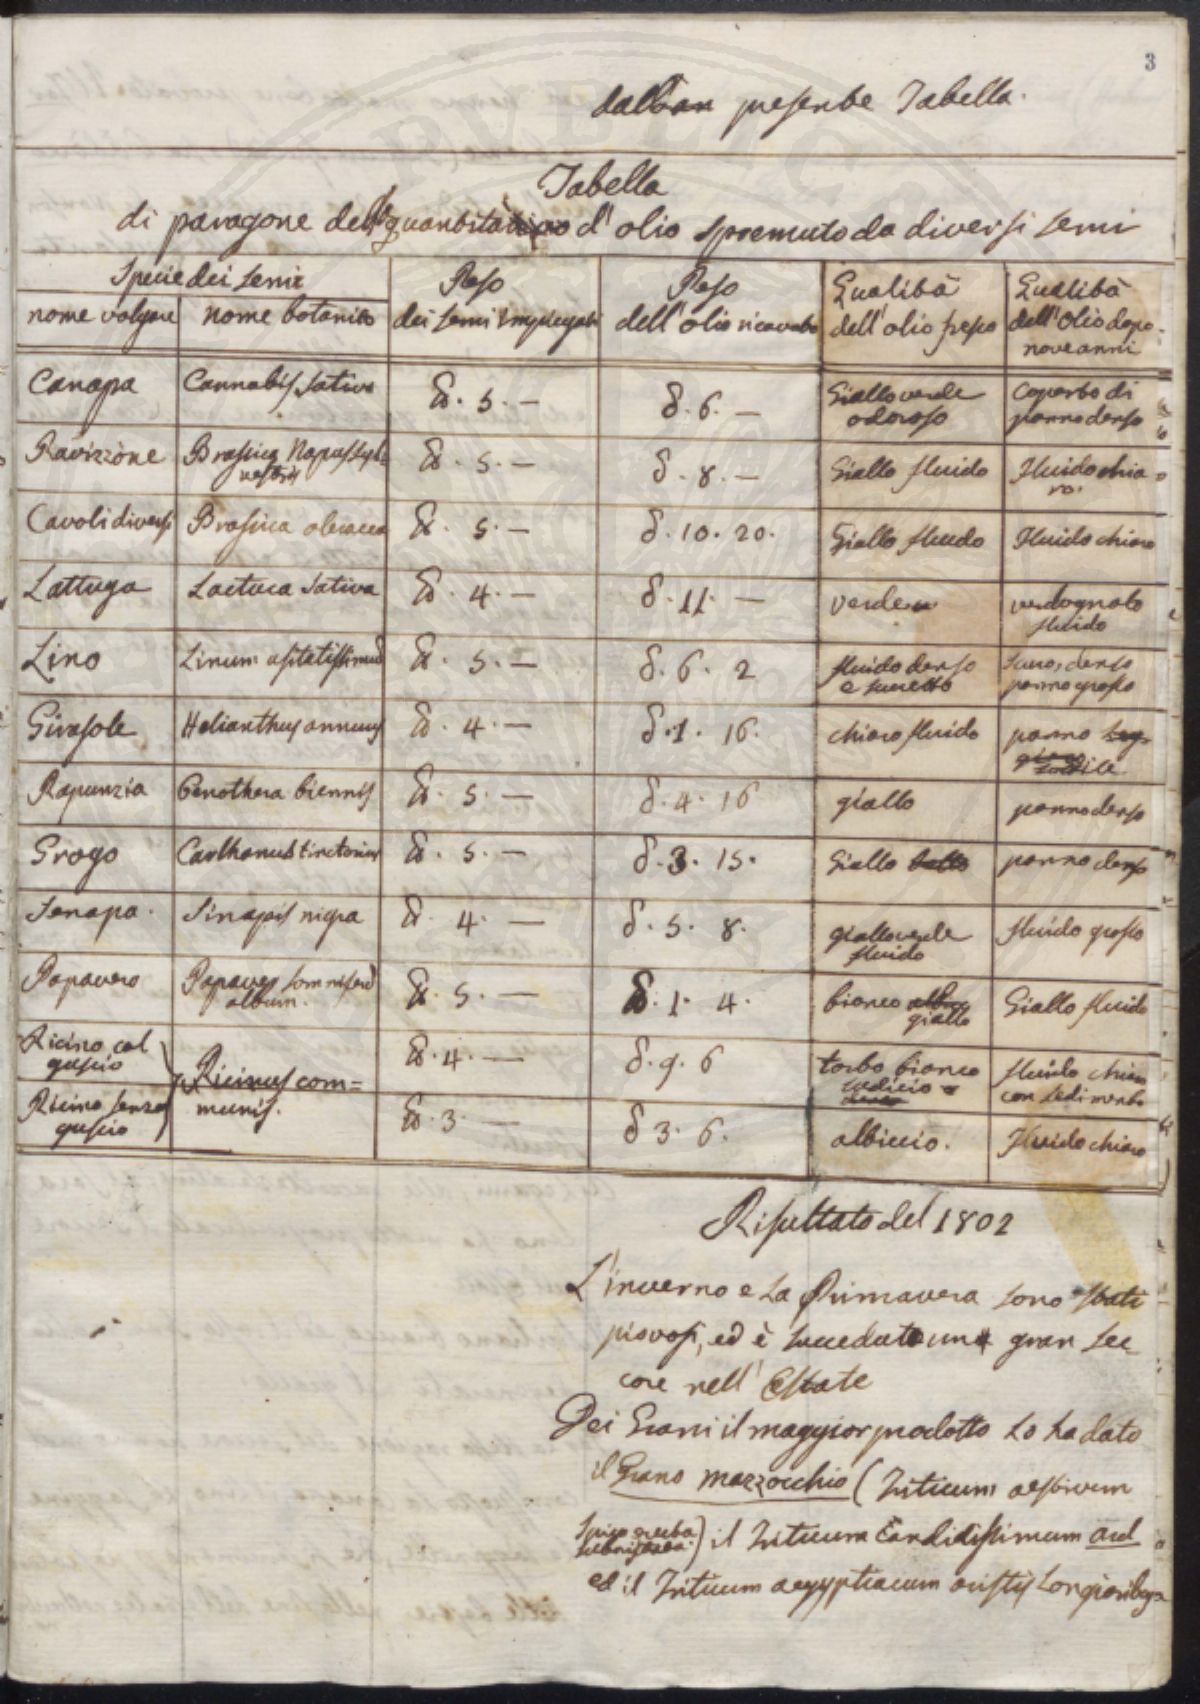 3
dalla presente Tabella.
Tabella
di paragone della quantità d'olio spremuto da diversi semi
Specie dei semi
Peso
Peso
Qualità
Qualità
nome volgare nome botanico dei semi impiegati dell'olio ricavato dell'olio fresco dell'olio dopo
nove anni
Canapa Cannabis sativa ℔. 5. — δ. 6. — Giallo verde odoroso Coperto di panno denso
Ravizzone Brassica Napus sylvestris ℔. 5. — δ. 8. — Giallo fluido Fluido chiaro.
Cavoli diversi Brassica oleracea ℔. 5. — δ. 10. 20. Giallo fluido Fluido chiaro
Lattuga Lactuca sativa ℔. 4. — δ. 11. — verde verdognolo fluido
Lino Linum usitatissimum ℔. 5. — δ. 6. 2 fluido denso e scuretto Scuro, denso panno grosso
Girasole Helianthus annuus ℔. 4. — δ. 1. 16. chiaro fluido panno
Rapunzia Oenothera biennis ℔. 5. — δ. 4. 16 giallo panno denso
Grogo Carthamus tinctorius ℔. 5. — δ. 3. 15. Giallo panno denso
Senapa. Sinapis nigra ℔. 4. — δ. 5. 8. giallo verde fluido fluido grosso
Papavero Papaver somniferum album. ℔. 5. — ℔. 1. 4. bianco giallo Giallo fluido
Ricino col guscio Ricinus com= ℔. 4. — δ. 9. 6 torbo bianco fluido chiaro con sedimento
Ricino senza guscio munis. ℔. 3. — δ 3. 6. albiccio. Fluido chiaro
Risultato del 1802
L'inverno e la Primavera sono stati
piovosi, ed è succeduto una gran sec=
core nell'Estate
Dei Grani il maggior prodotto lo ha dato
il Grano mazzocchio (Triticum aestivum
spica) il Triticum Candidissimum
ed il Triticum aegyptiacum aristis longioribus